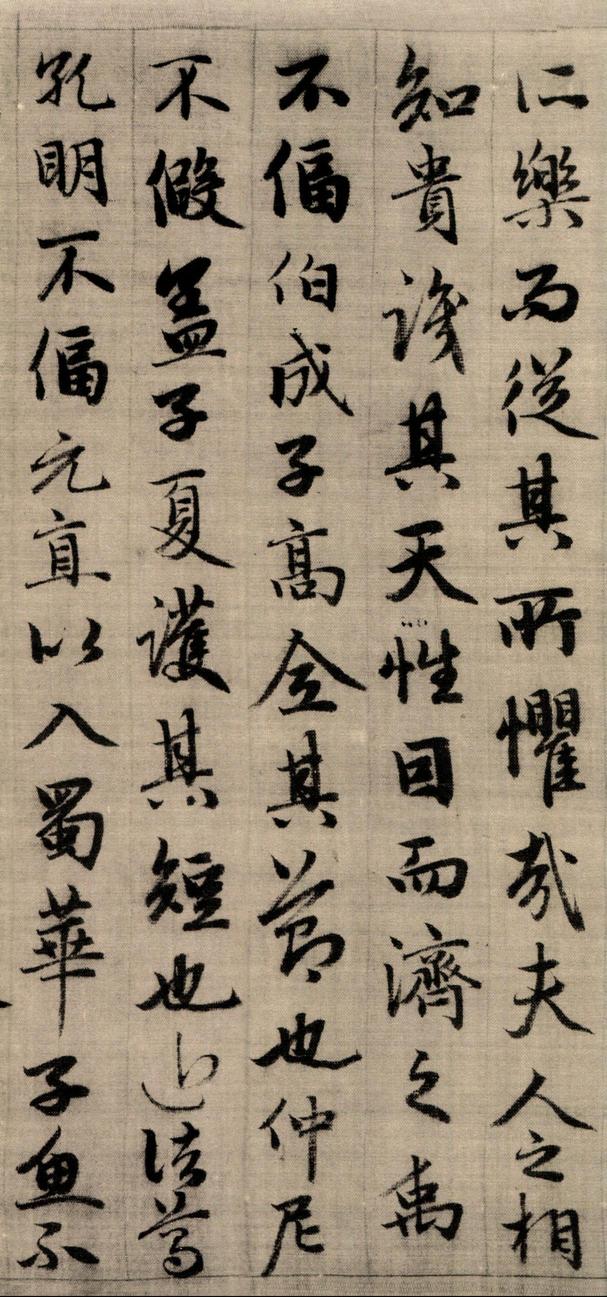 所樂而從其所懼哉夫人之相
知貴識其天性因而濟之禹
不偪伯成子高全其節也仲尼
不假盖子夏護其短也近諸葛
孔明不偪元直以入蜀華子魚不